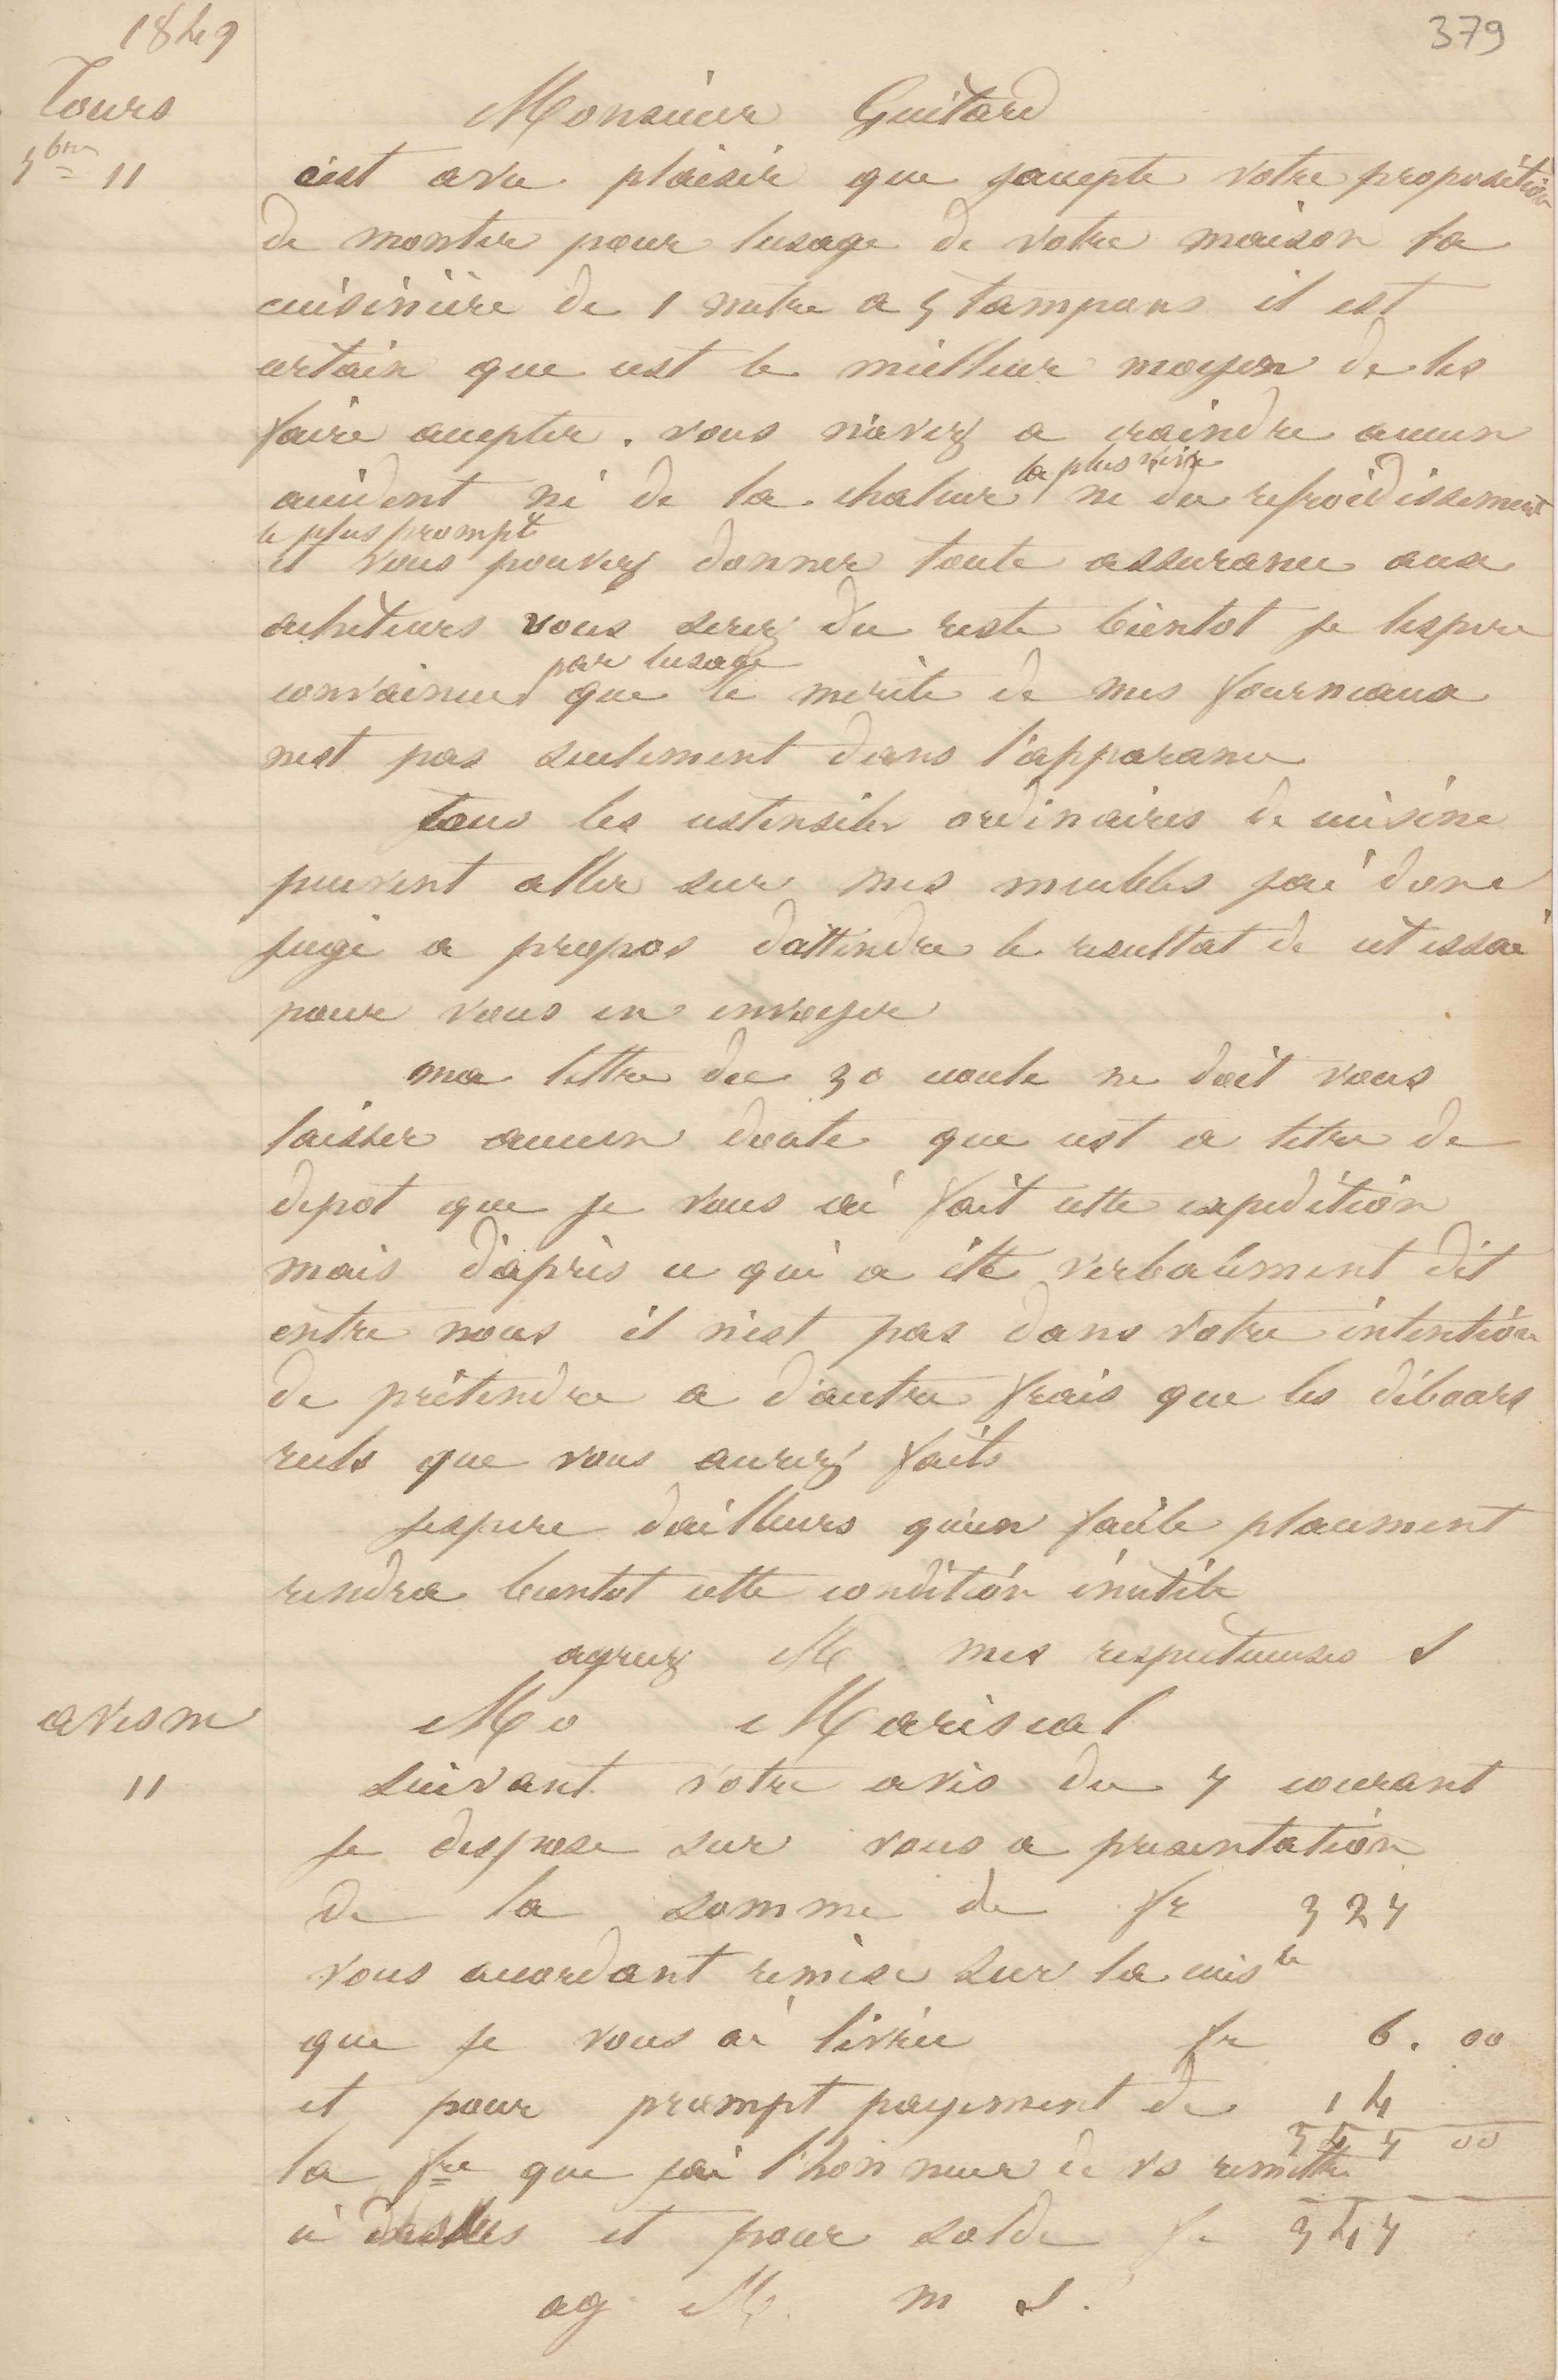 1849
379
Tours
Monsieur Guitard
7bre 11
c'est avec plaisir que jaccepte votre proposition
de monter pour lusage de votre maison la
cuisinière de 1 metre a 5 tampons il est
certain que cest le meilleur moyen de les
faire accepter. vous n'avez a craindre aucun
accident ni de la chaleur la plus vive ni du refroidissement
le plus prompt
et vous pouvez donner toute assurance aux
acheteurs vous serez du reste bientot je lespere
convaincu par lusage que le merite de mes fourneaux
nest pas seulement dans l'apparance
tous les ustensiles ordinaires de cuisine
peuvent aller sur mes meubles jai donc
jugé a propos dattendre le resultat de cet essai
pour vous en envoyer
ma lettre du 30 ecoule ne doit vous
laisser aucun doute que cest a titre de
depot que je vous ai fait cette expedition
mais d'après ce qui a été verbalement dit
entre nous il n'est pas dans votre intention
de prétendre a d'autre frais que les débours
reels que vous aurez faits
jespere dailleurs qu'un facile placement
rendra bientot cette condition inutile
agreez M. mes respectueuses s
Mo Mariscal
11
suivant votre avis du 7 courant
je dispose sur vous a presentation
de la somme de fr 327
vous accordant remise sur la cuisre
que je vous ai livrée fr 6. 00
et pour prompt payement de 14
347 00
la fre que jai l'honneur de vs remettre
et pour solde fr 347
ag M. m s.